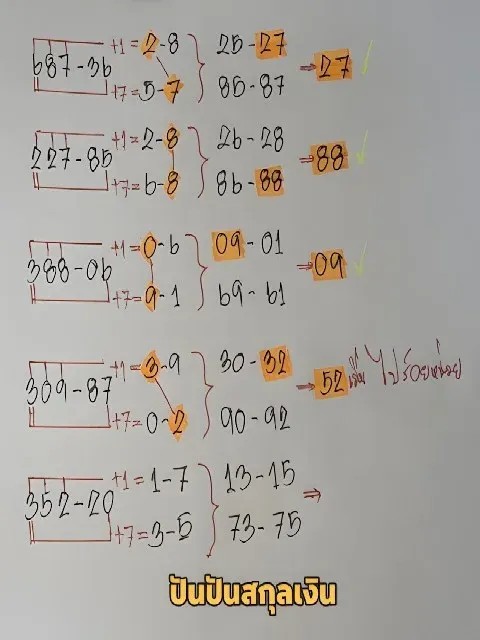 +1 = 2-8 25-27
687-36 ⇒ 27 ✓
+7 = 5-7 85-87
+1 = 2-8 26-28
227-85 ⇒ 88 ✓
+7 = 6-8 86-88
+1 = 0-6 09-01
388-06 ⇒ 09 ✓
+7 = 9-1 69-61
+1 = 3-9 30-32
309-87 ⇒ 52
+7 = 0-2 90-92
+1 = 1-7 13-15
352-20 ⇒
+7 = 3-5 73-75
ปันปันสกุลเงิน